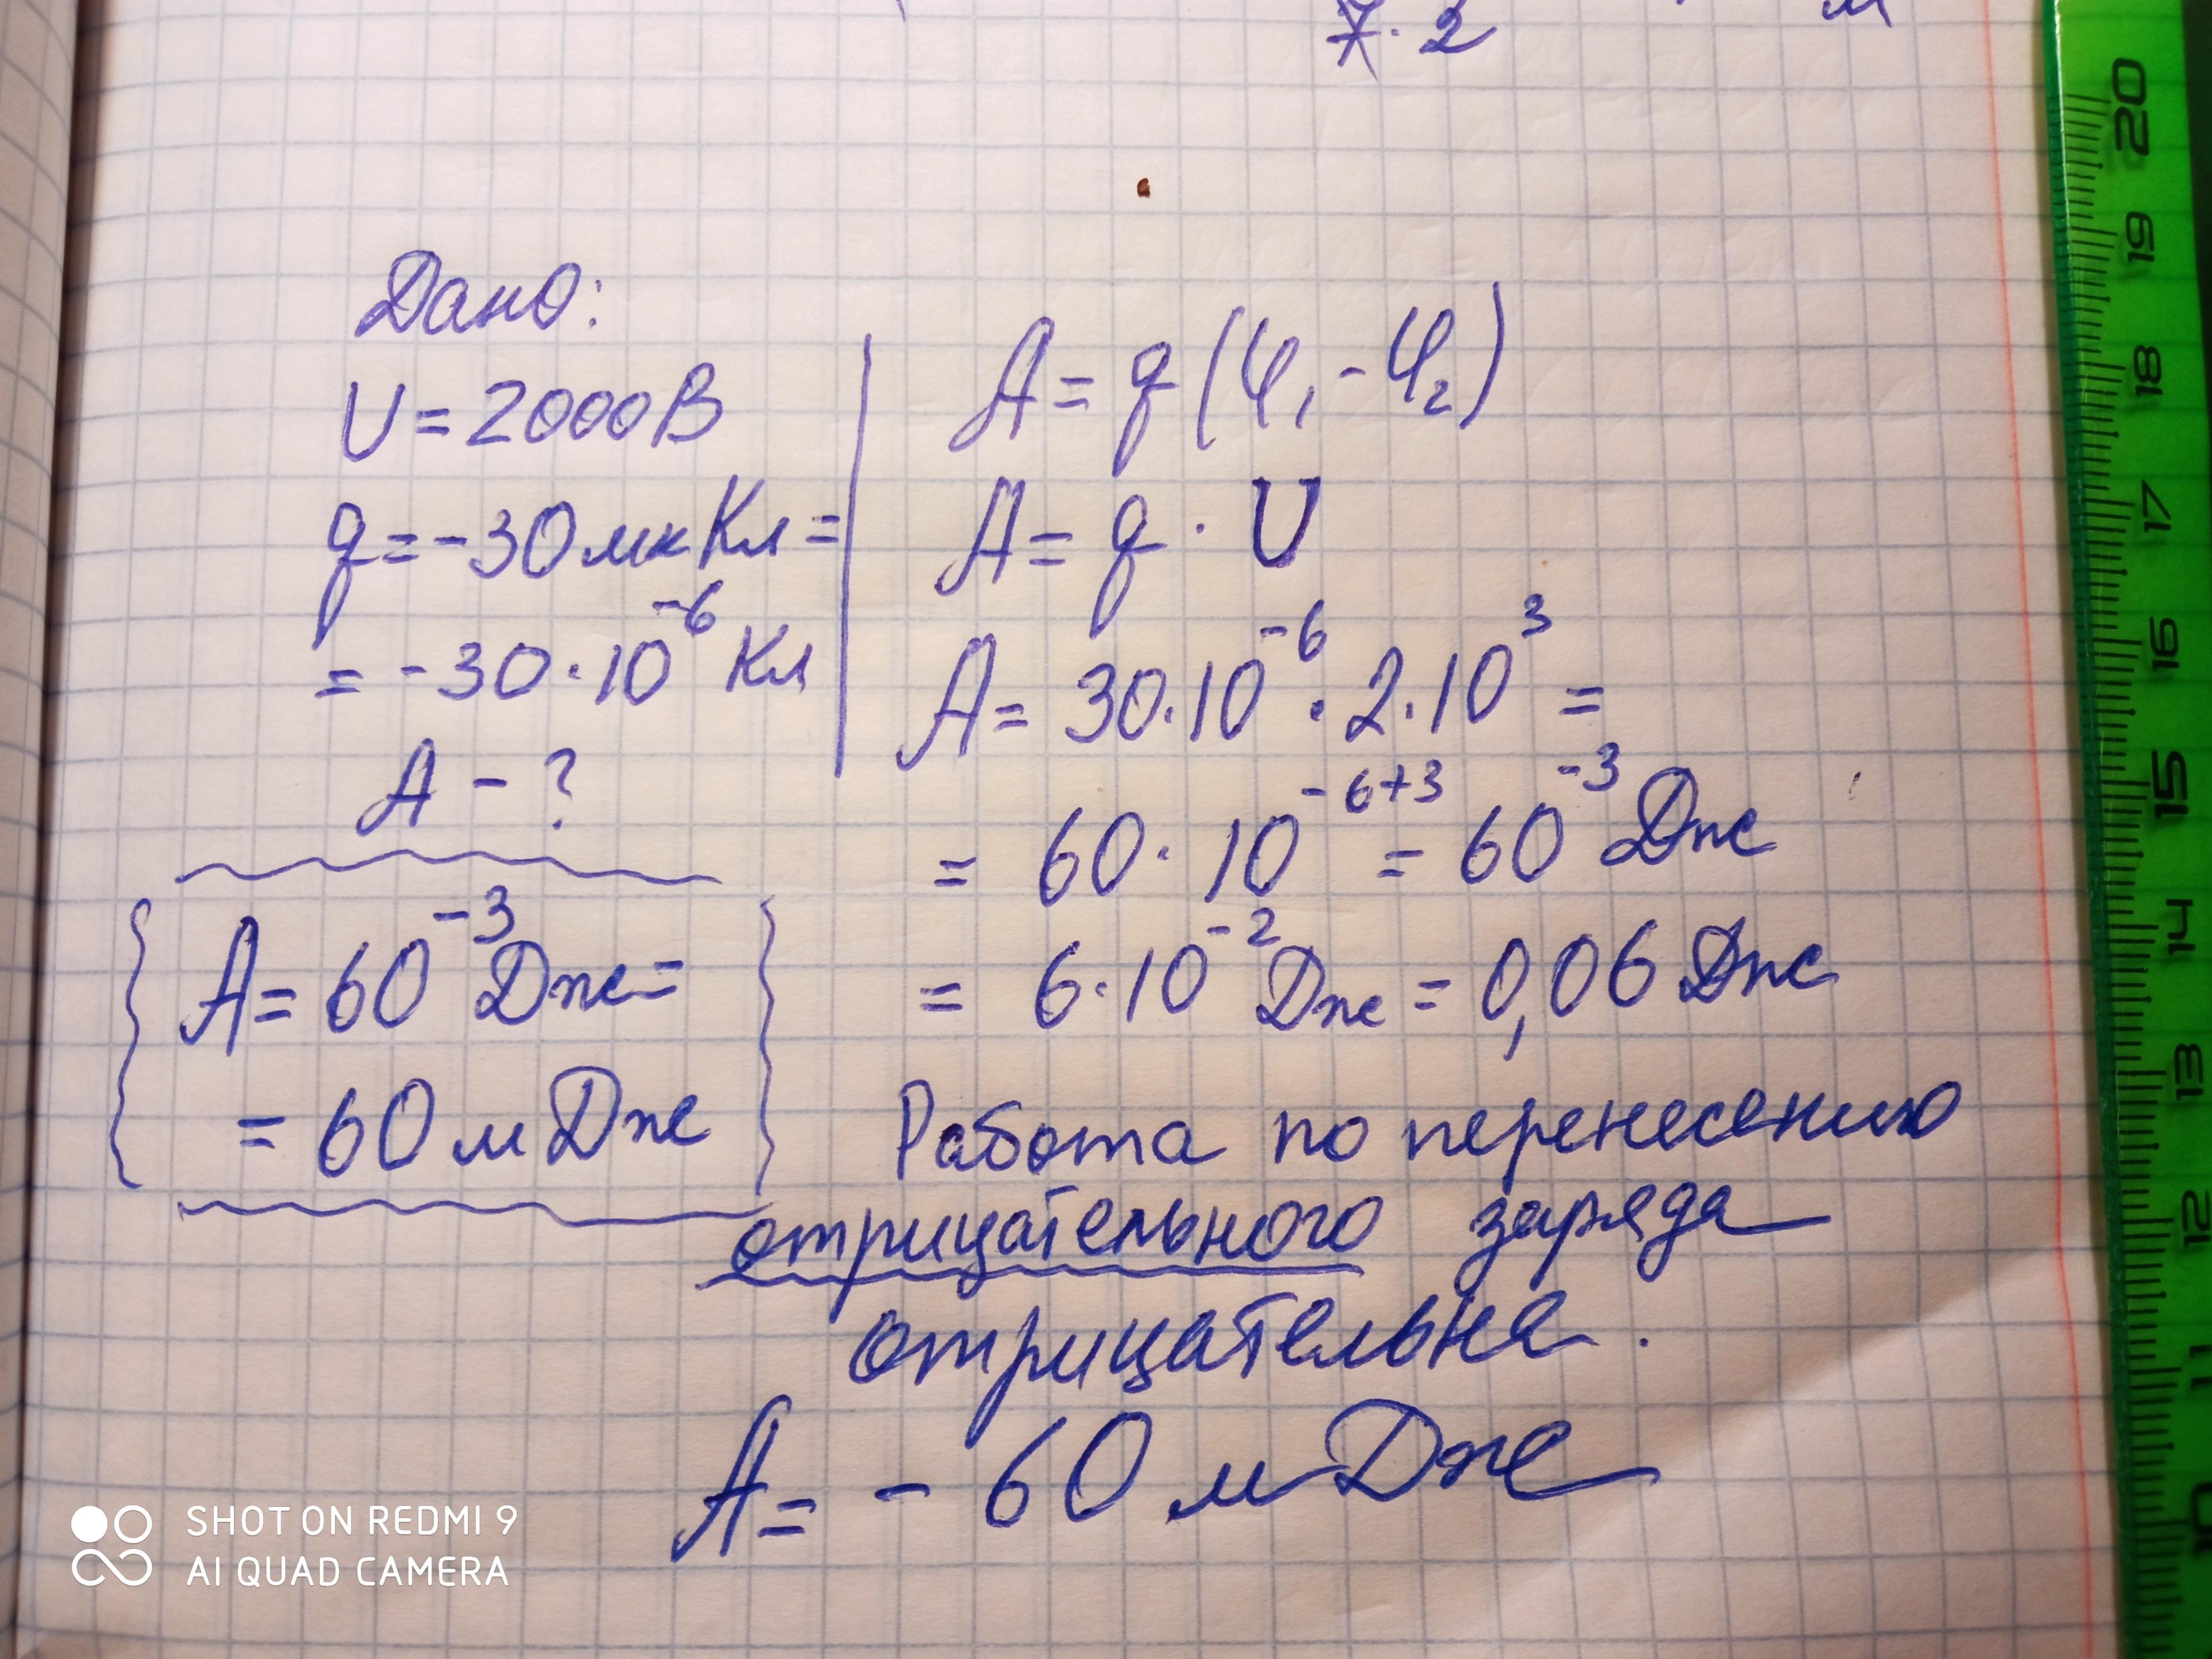 7·2 м
Дано:
U = 2000 В
q = -30 мкКл =
= -30·10⁻⁶ Кл
A - ?
A = 60⁻³ Дж =
= 60 мДж
A = q(φ₁ - φ₂)
A = q · U
A = 30·10⁻⁶ · 2·10³ =
= 60·10⁻⁶⁺³ = 60⁻³ Дж
= 6·10⁻² Дж = 0,06 Дж
Работа по перенесению
отрицательного заряда
отрицательна.
A = - 60 мДж
20
19
18
17
16
15
14
13
12
11
SHOT ON REDMI 9
AI QUAD CAMERA